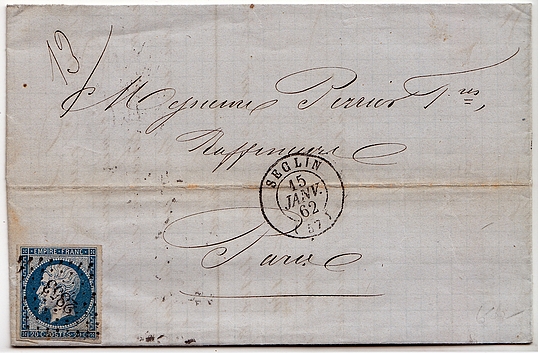 13
Messieurs Perrier f.res,
Raffineurs
SEGLIN
15
JANV.
62
(57)
Paris
EMPIRE FRANC.
20 c POSTES 20 c